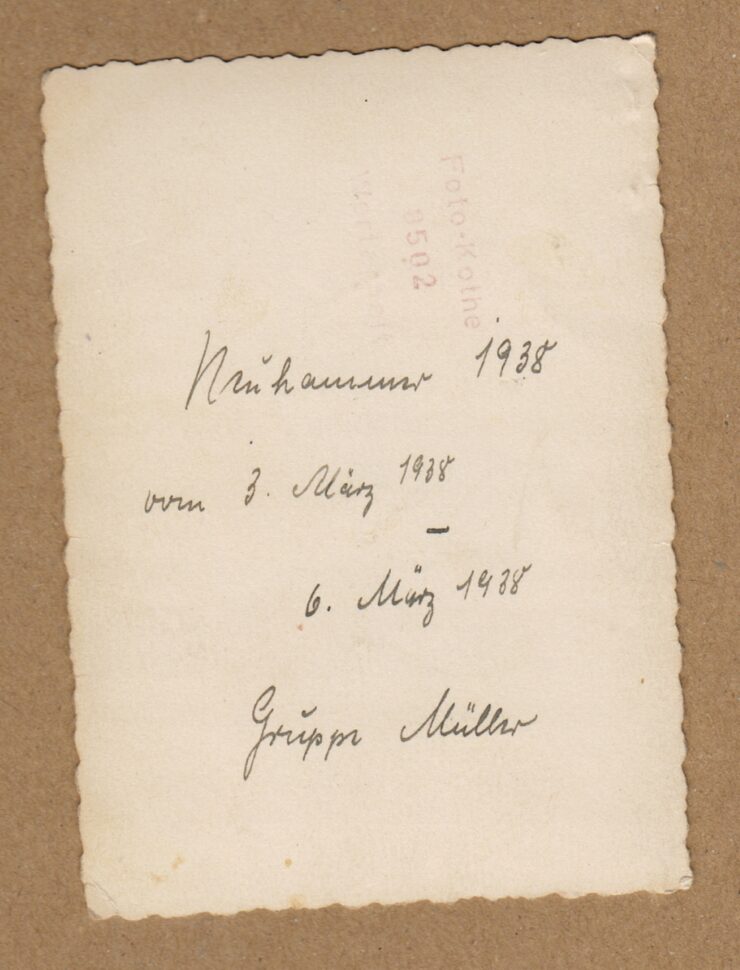 Foto-Kothe
8502
Neuhammer 1938
vom 3. März 1938
–
6. März 1938
Gruppe Müller